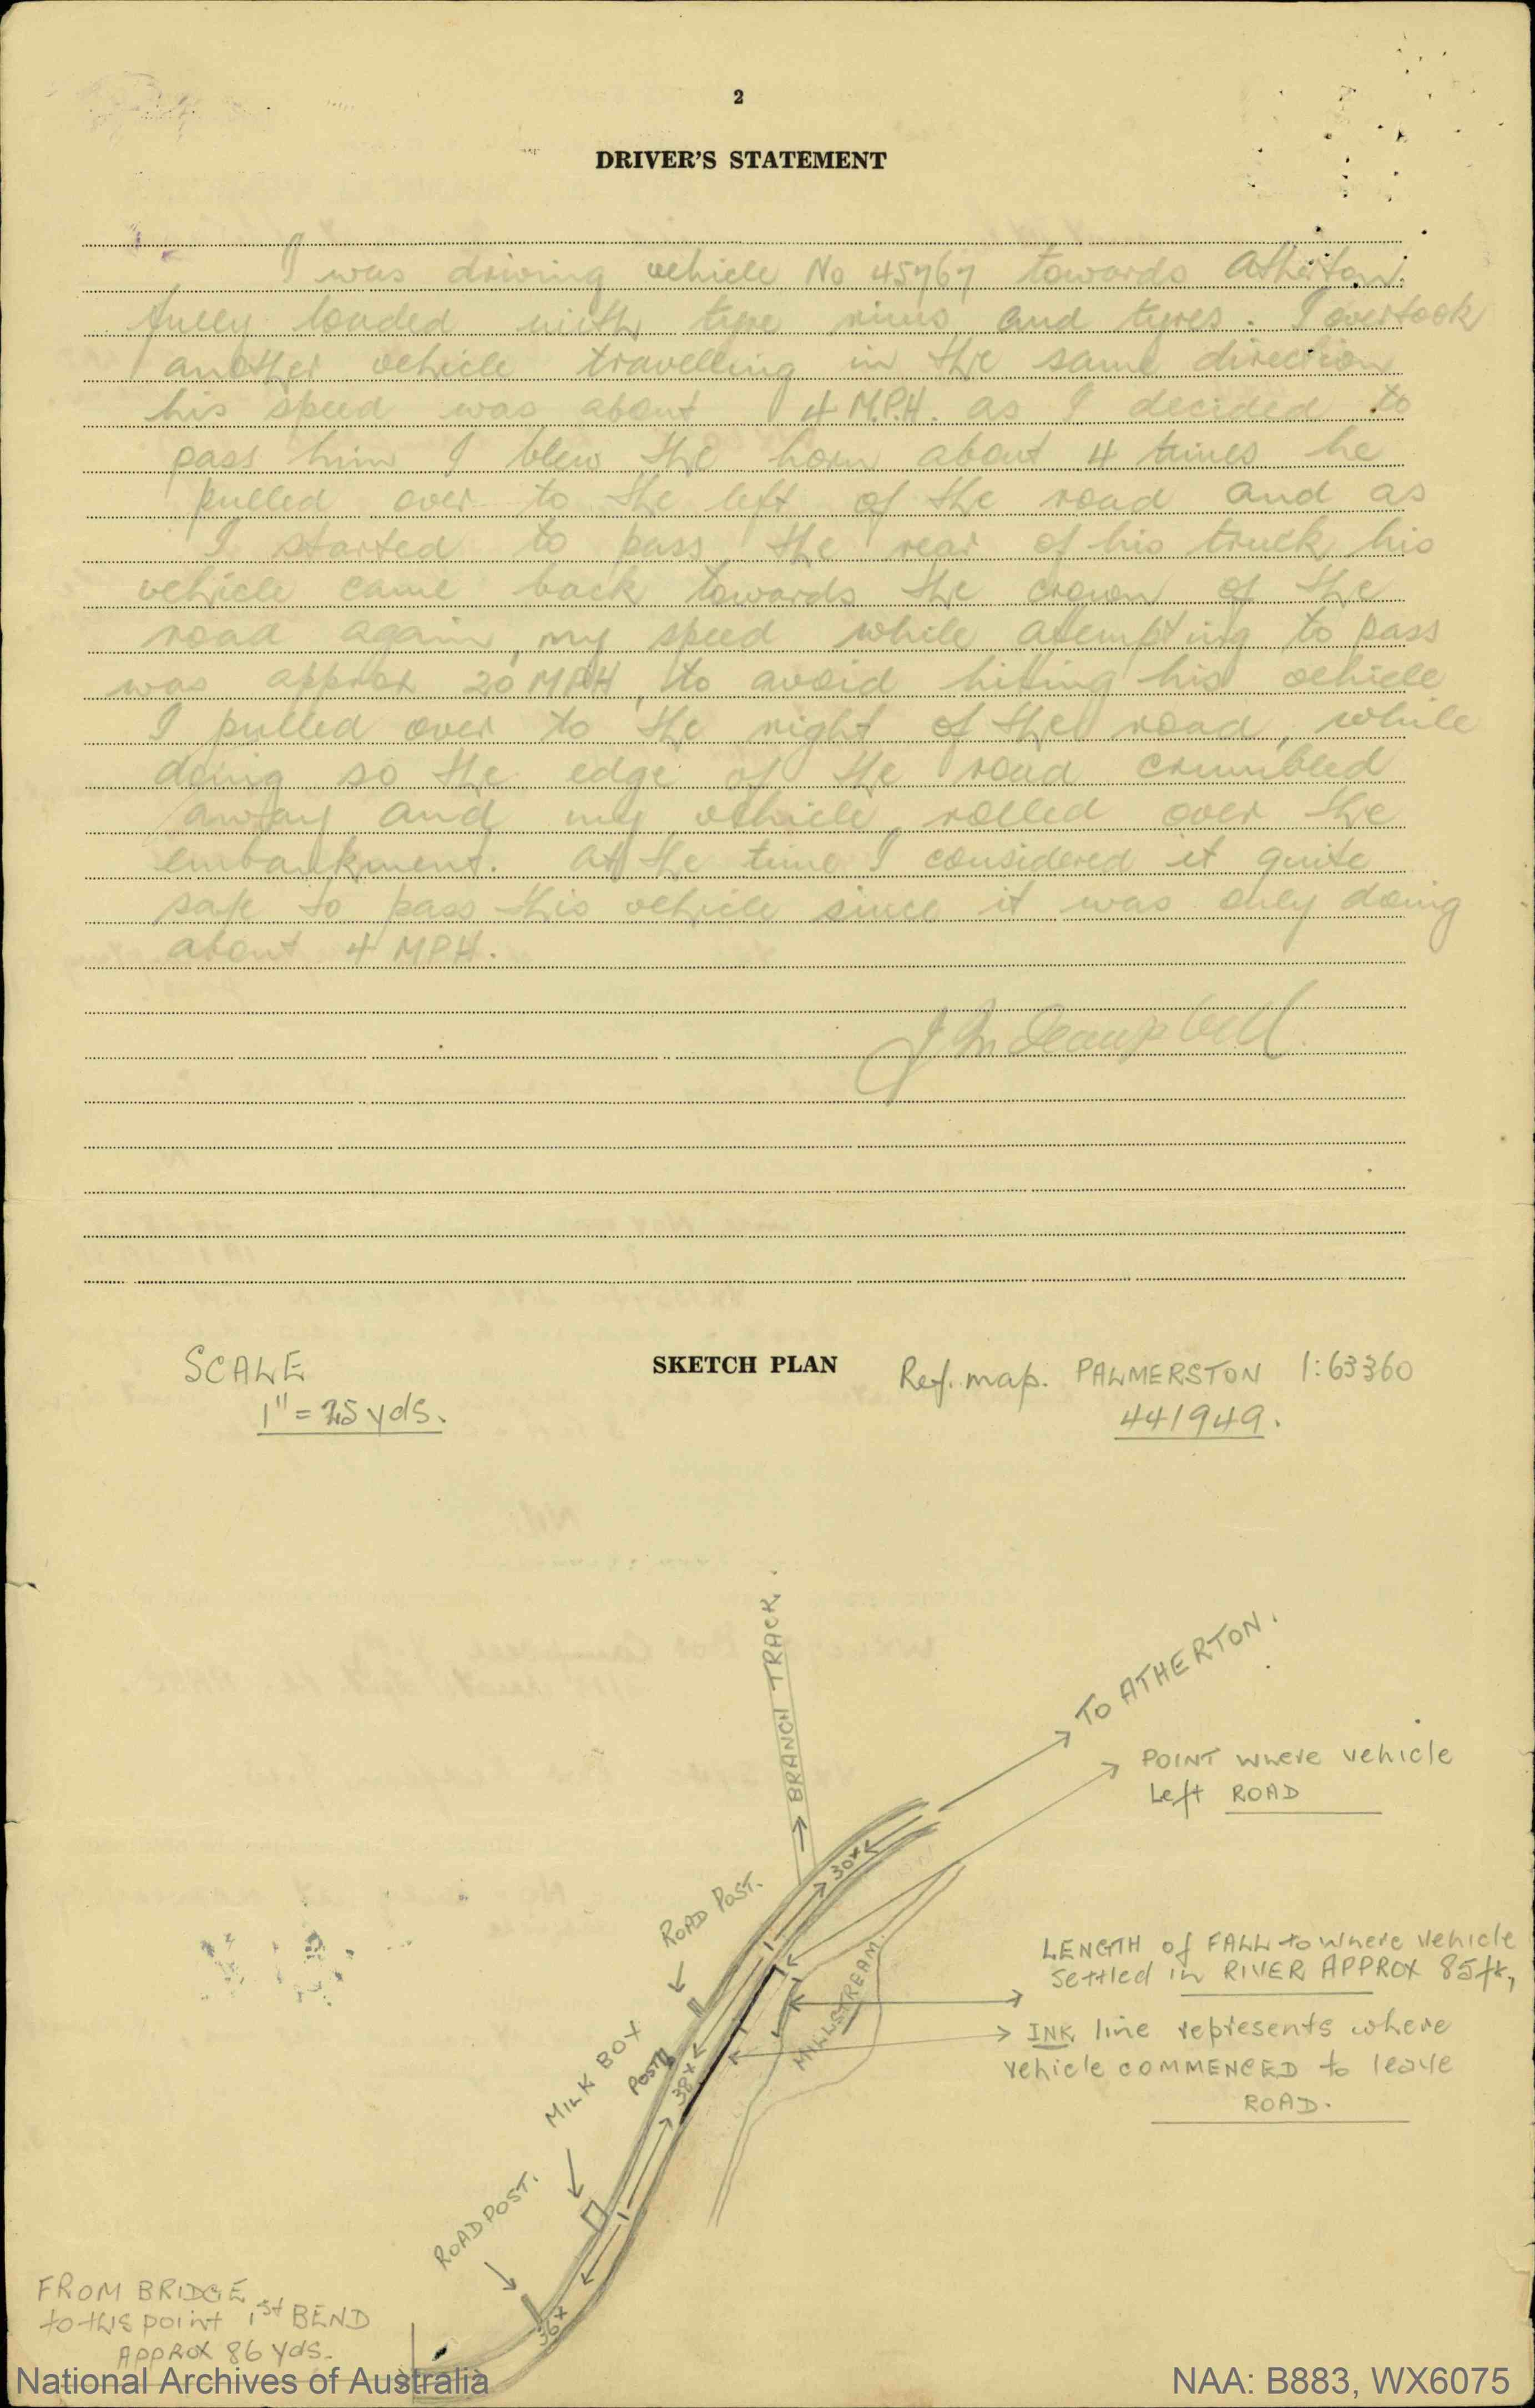 2
DRIVER'S STATEMENT
I was driving vehicle No 45767 towards Atherton.
fully loaded with tyre rims and tyres. I overtook
another vehicle travelling in the same direction
his speed was about 4 M.P.H. as I decided to
pass him I blew the horn about 4 times he
pulled over to the left of the road and as
I started to pass the rear of his truck his
vehicle came back towards the crown of the
road again, my speed while atempting to pass
was approx 20 MPH, to avoid hitting his vehicle
I pulled over to the right of the road, while
doing so the edge of the road crumbled
away and my vehicle rolled over the
embankment. At the time I considered it quite
safe to pass this vehicle since it was only doing
about 4 MPH.
Campbell
SCALE
1" = 25 yds.
SKETCH PLAN
Ref. map. PALMERSTON 1:63360
441949.
BRANCH TRACK.
TO ATHERTON.
POINT where vehicle
Left ROAD
30x
ROAD POST.
MILLSTREAM.
LENGTH of FALL to where vehicle
settled in RIVER APPROX 85ft,
INK line represents where
vehicle COMMENCED to leave
ROAD.
MILK BOX
POST
38x
ROAD POST.
36x
FROM BRIDGE
to this point 1st BEND
APPROX 86 yds.
National Archives of Australia
NAA: B883, WX6075